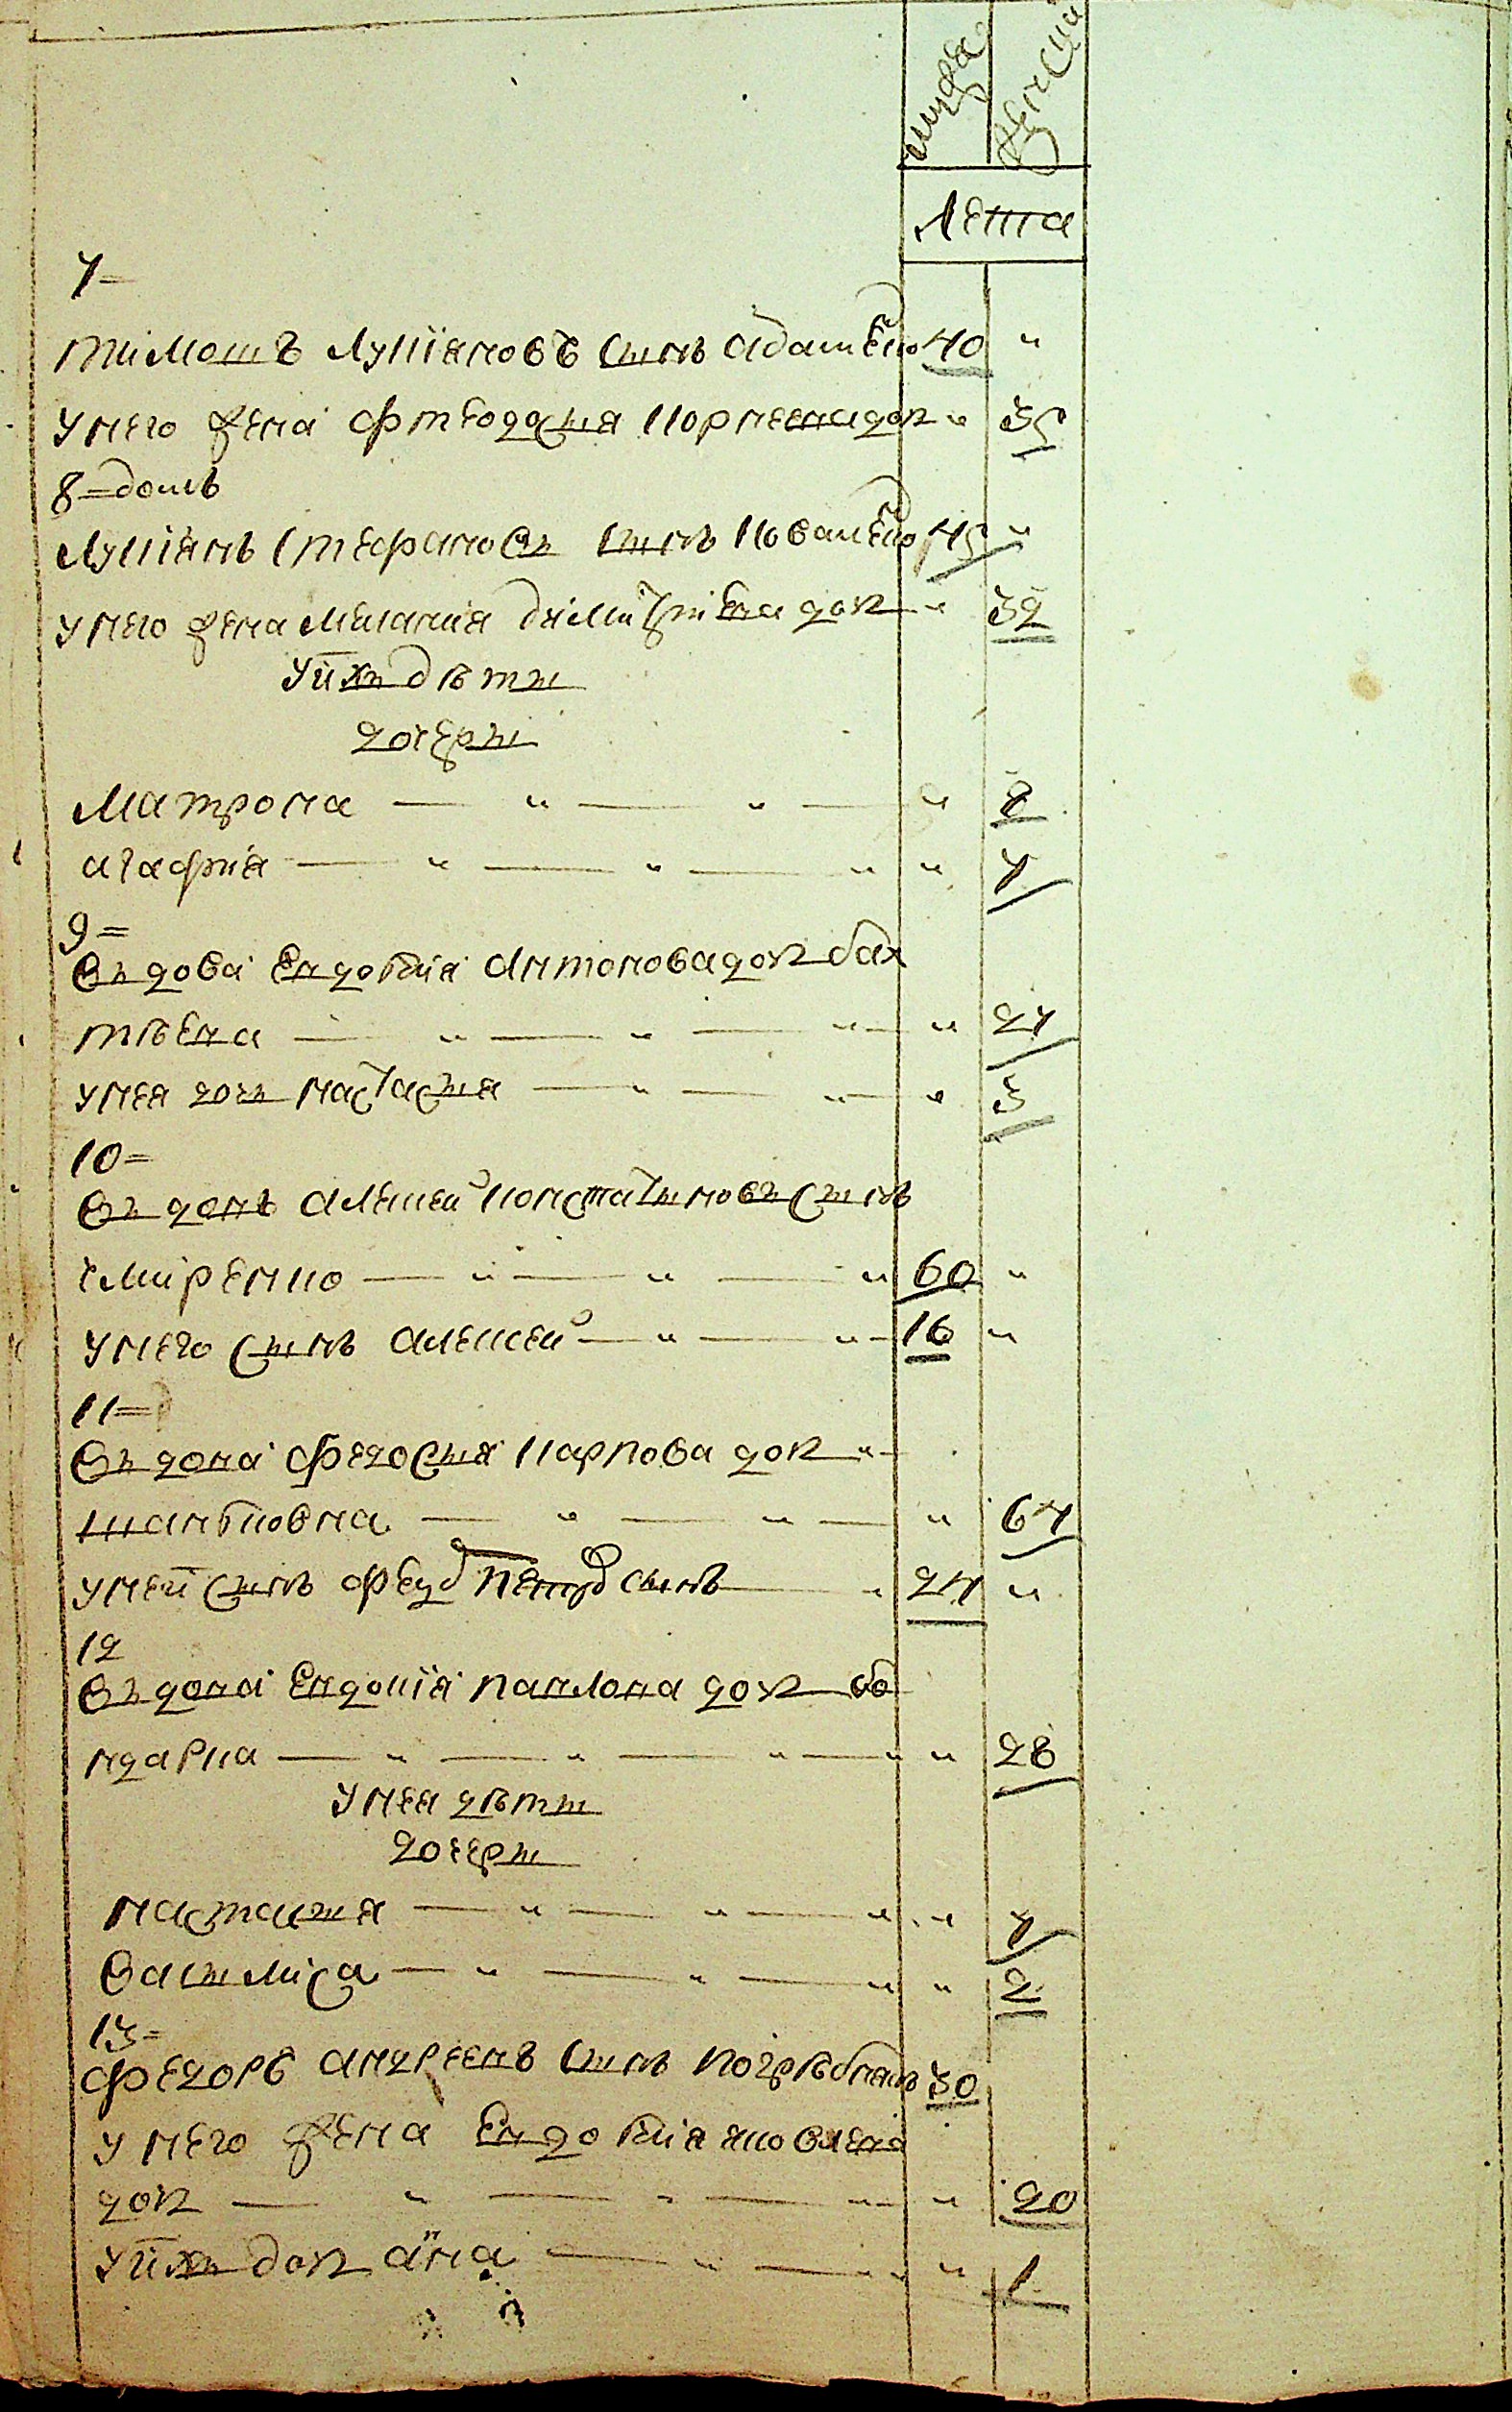 мужа женска
лета
7=
тимошъ лукїяновъ сынъ адаменко 40 "
у него жена фтеодосыя корнеевна доч " 35
8=домъ
лукїянъ стефановъ сынъ коваленко 45 "
у него жена мелания димитриевна доч " 32
у ихъ дѣты
дочеры
матрона — " — " — " 8
агафия — " — " — " " 7
9=
въдова евдокия антонова доч бах
тѣева — " — " — " " 27
у нея дочь настасыя — " — " " 3
10=
въдовъ алексей констатыновъ сынъ
смиренко — " — " — " 60 "
у него сынъ алексей — " — " 16 "
11=
въдова федосыя карпова доч "
— " — " — " 64
у ней сынъ сынъ — " 24 "
12
въдова евдокїя павлова доч бо
ндарка — " — " — " — " " 28
у нея дѣты
дочеры
настасыя — " — " — " " 7
васылиса — " — " — " " 2
13=
федоръ андреевъ сынъ 30
у него жена евдокия яковлева
доч — " — " — " " 20
у ихъ доч анна — " — " " 1